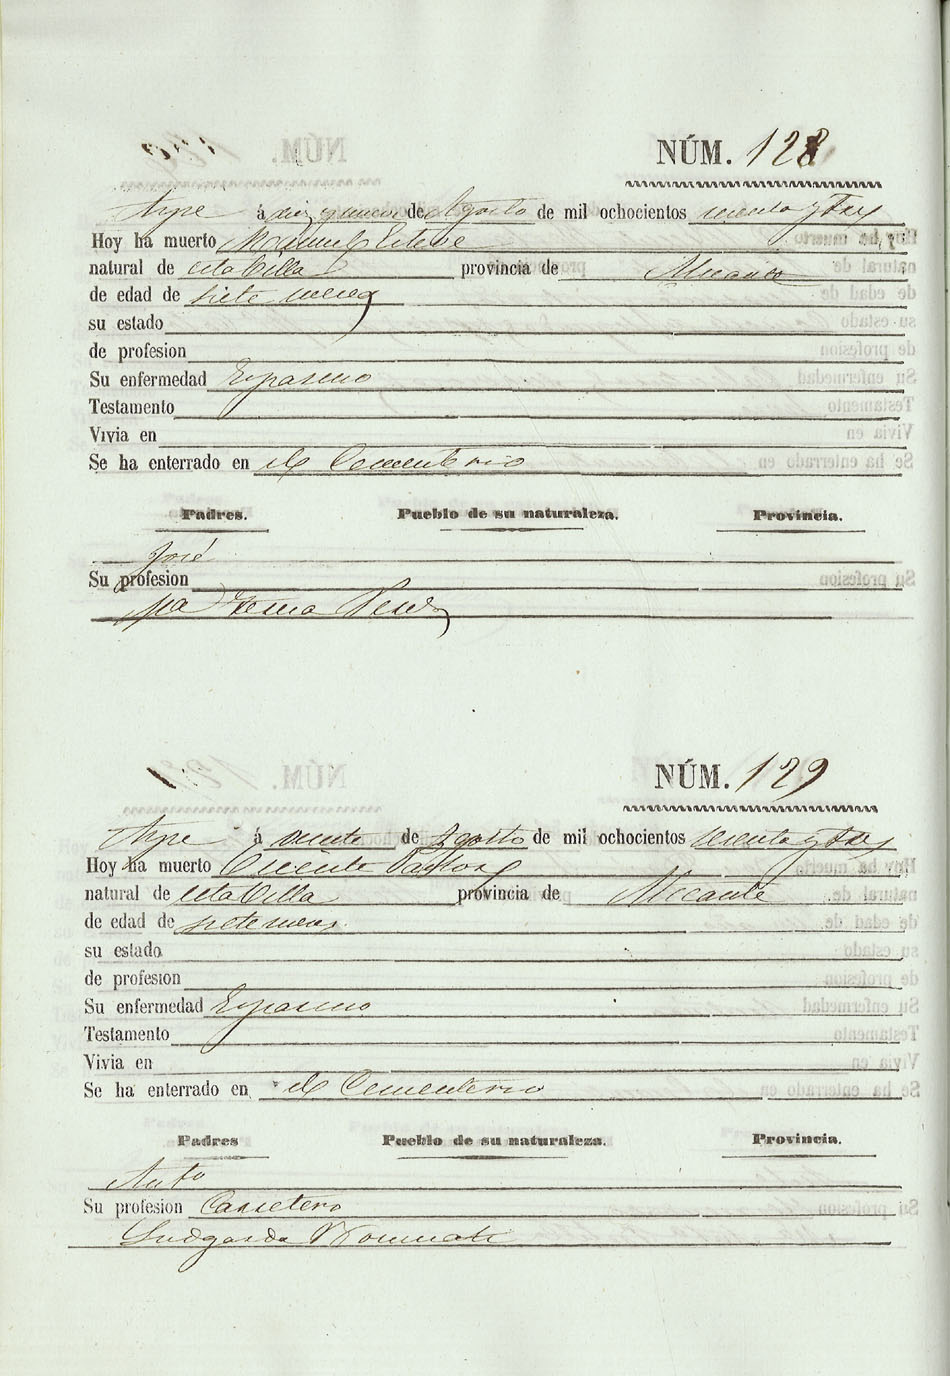 NÚM. 128
Aspe á diez y nueve de Agosto de mil ochocientos sesenta y tres
Hoy ha muerto Manuel Esteve
natural de esta Villa provincia de Alicante
de edad de siete meses
su estado
de profesion
Su enfermedad Espasmo
Testamento
Vivia en
Se ha enterrado en el Cementerio
Padres. Pueblo de su naturaleza. Provincia.
José
Su profesion
Ma
NÚM. 129
Aspe á veinte de Agosto de mil ochocientos sesenta y tres
Hoy ha muerto Vicente Pastor
natural de esta Villa provincia de Alicante
de edad de siete meses
su estado
de profesion
Su enfermedad Espasmo
Testamento
Vivia en
Se ha enterrado en el Cementerio
Padres Pueblo de su naturaleza. Provincia.
Anto
Su profesion Carretero
Ludgarda